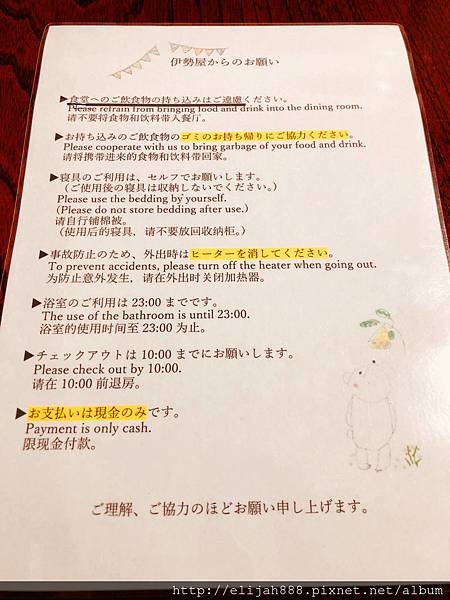 伊勢屋からのお願い
▶食堂へのご飲食物の持ち込みはご遠慮ください。
Please refrain from bringing food and drink into the dining room.
请不要将食物和饮料带入餐厅。
▶お持ち込みのご飲食物のゴミのお持ち帰りにご協力ください。
Please cooperate with us to bring garbage of your food and drink.
请将携带进来的食物和饮料带回家。
▶寝具のご利用は、セルフでお願いします。
（ご使用後の寝具は収納しないでください。）
Please use the bedding by yourself.
(Please do not store bedding after use.)
请自行铺棉被。
（使用后的寝具，请不要放回收纳柜。）
▶事故防止のため、外出時はヒーターを消してください。
To prevent accidents, please turn off the heater when going out.
为防止意外发生，请在外出时关闭加热器。
▶浴室のご利用は 23:00 までです。
The use of the bathroom is until 23:00.
浴室的使用时间至 23:00 为止。
▶チェックアウトは 10:00 までにお願いします。
Please check out by 10:00.
请在 10:00 前退房。
▶お支払いは現金のみです。
Payment is only cash.
限现金付款。
ご理解、ご協力のほどお願い申し上げます。
http://elijah888.pixnet.net/album